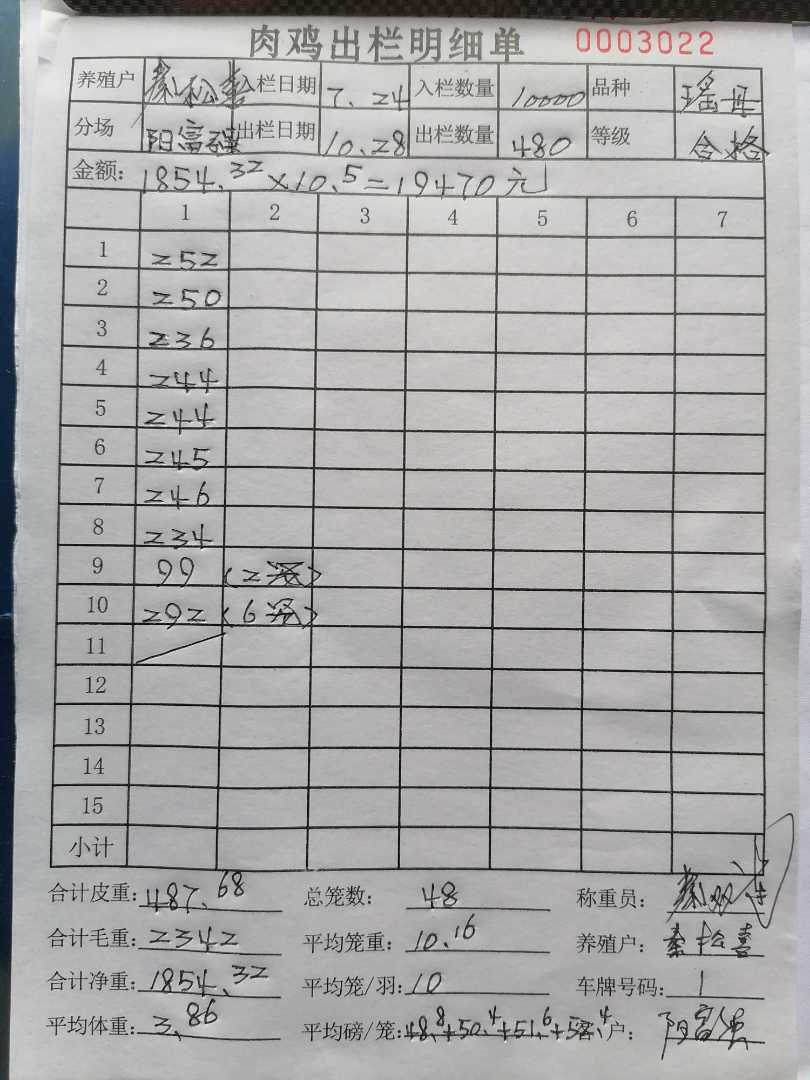 肉鸡出栏明细单 0003022
养殖户 秦松喜 入栏日期 7.24 入栏数量 10000 品种 瑶丹
分场 阳富强 出栏日期 10.28 出栏数量 480 等级 合格
金额: 1854.32×10.5=19470元
1 2 3 4 5 6 7
1 252
2 250
3 236
4 244
5 244
6 245
7 246
8 234
9 99 (2笼)
10 292 (6笼)
11
12
13
14
15
小计
合计皮重: 487.68 总笼数: 48 称重员: 秦双
合计毛重: 2342 平均笼重: 10.16 养殖户: 秦松喜
合计净重: 1854.32 平均笼/羽: 10 车牌号码: 1
平均体重: 3.86 平均磅/笼: 48.8+50.4+51.6+52.4 户: 阳富强